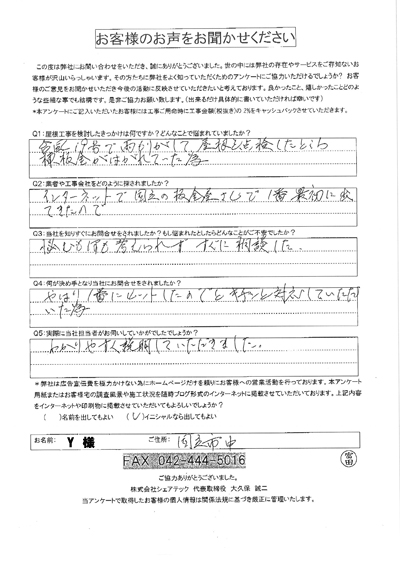 お客様のお声をお聞かせください
この度は弊社にお問い合わせをいただき、誠にありがとうございました。世の中には弊社の存在やサービスをご存知ないお
客様が沢山いらっしゃいます。その方たちに弊社をよく知っていただくためのアンケートにご協力いただけるでしょうか？ お客
様のご意見をお聞かせいただき今後の活動に反映させていただきたいと考えております。良かったこと、嬉しかったことどのよ
うな些細な事でも結構です、是非ご協力お願い致します。（出来るだけ具体的に書いていただければ幸いです）
*アンケートにご記入いただいたお客様には工事ご用命時に工事金額(税抜き)の2%をキャッシュバックさせていただきます。
Q1：屋根工事を検討したきっかけは何ですか？どんなことで悩まれていましたか？
台風19号で雨トイがして屋根を点検したところ
棟板金がはがれていた為
Q2：業者や工事会社をどのように探されましたか？
インターネットで国立の板金屋さんで1番最初に出
てきたので
Q3：当社を知りすぐにお問合せをされましたか？もし悩まれたとしたらどんなことがご不安でしたか？
悩むひまも考えられず すぐに相談した.
Q4：何が決め手となり当社にお問合せをされましたか？
やはり1番にヒットしたのでとキチンと対応していただ
いた為
Q5：実際に当社担当者がお伺いしていかがでしたでしょうか？
わかりやすく説明していただきました.
*弊社は広告宣伝費を極力かけない為にホームページだけを頼りにお客様への営業活動を行っております。本アンケート
用紙またはお客様宅の調査風景や施工状況を随時ブログ形式のインターネットに掲載させていただいております。上記内容
をインターネットや印刷物に掲載させていただいてもよろしいでしょうか？
( )名前を出してもよい (レ)イニシャルなら出してもよい
お名前： Y 様 ご住所： 国立市中
FAX 042-444-5016
ご協力ありがとうございました。
株式会社シェアテック 代表取締役 大久保 誠二
当アンケートで取得したお客様の個人情報は関係法規に基づき厳正に管理いたします。